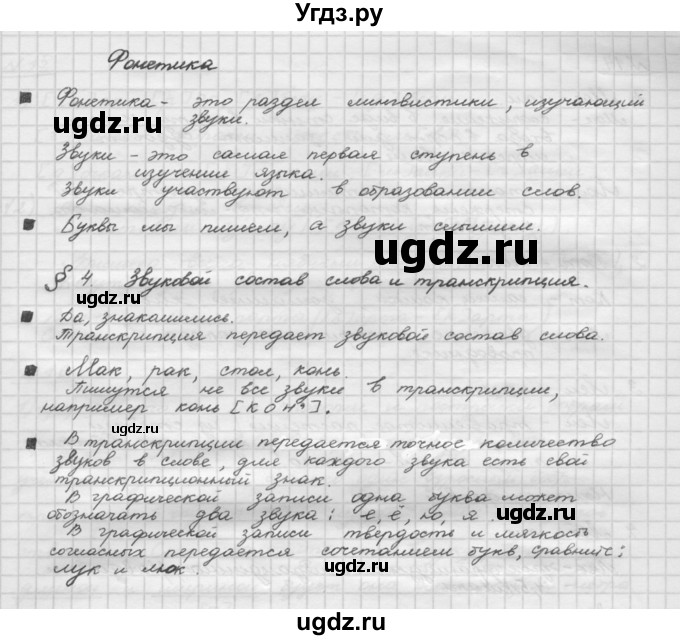 Угдз.ру
Фонетика
Фонетика - это раздел лингвистики, изучающий
ugdz.ru звуки.
Звуки - это самая первая ступень в
изучении языка.
Звуки участвуют в образовании слов.
Буквы мы пишем, а звуки слышим.
ugdz.ru
§ 4. Звуковой состав слова и транскрипция.
ugdz.ru
Да, знакомились.
Транскрипция передает звуковой состав слова.
Мак, рак, стол, конь.
Пишутся не все звуки в транскрипции,
например конь [кон'].
ugdz.ru
В транскрипции передается точное количество
звуков в слове, для каждого звука есть свой
транскрипционный знак.
В графической записи одна буква может
обозначать два звука: е, ё, ю, я. ugdz.ru
В графической записи твердость и мягкость
согласных передается сочетанием букв, сравните:
лук и люк. ugdz.ru
ugdz.ru